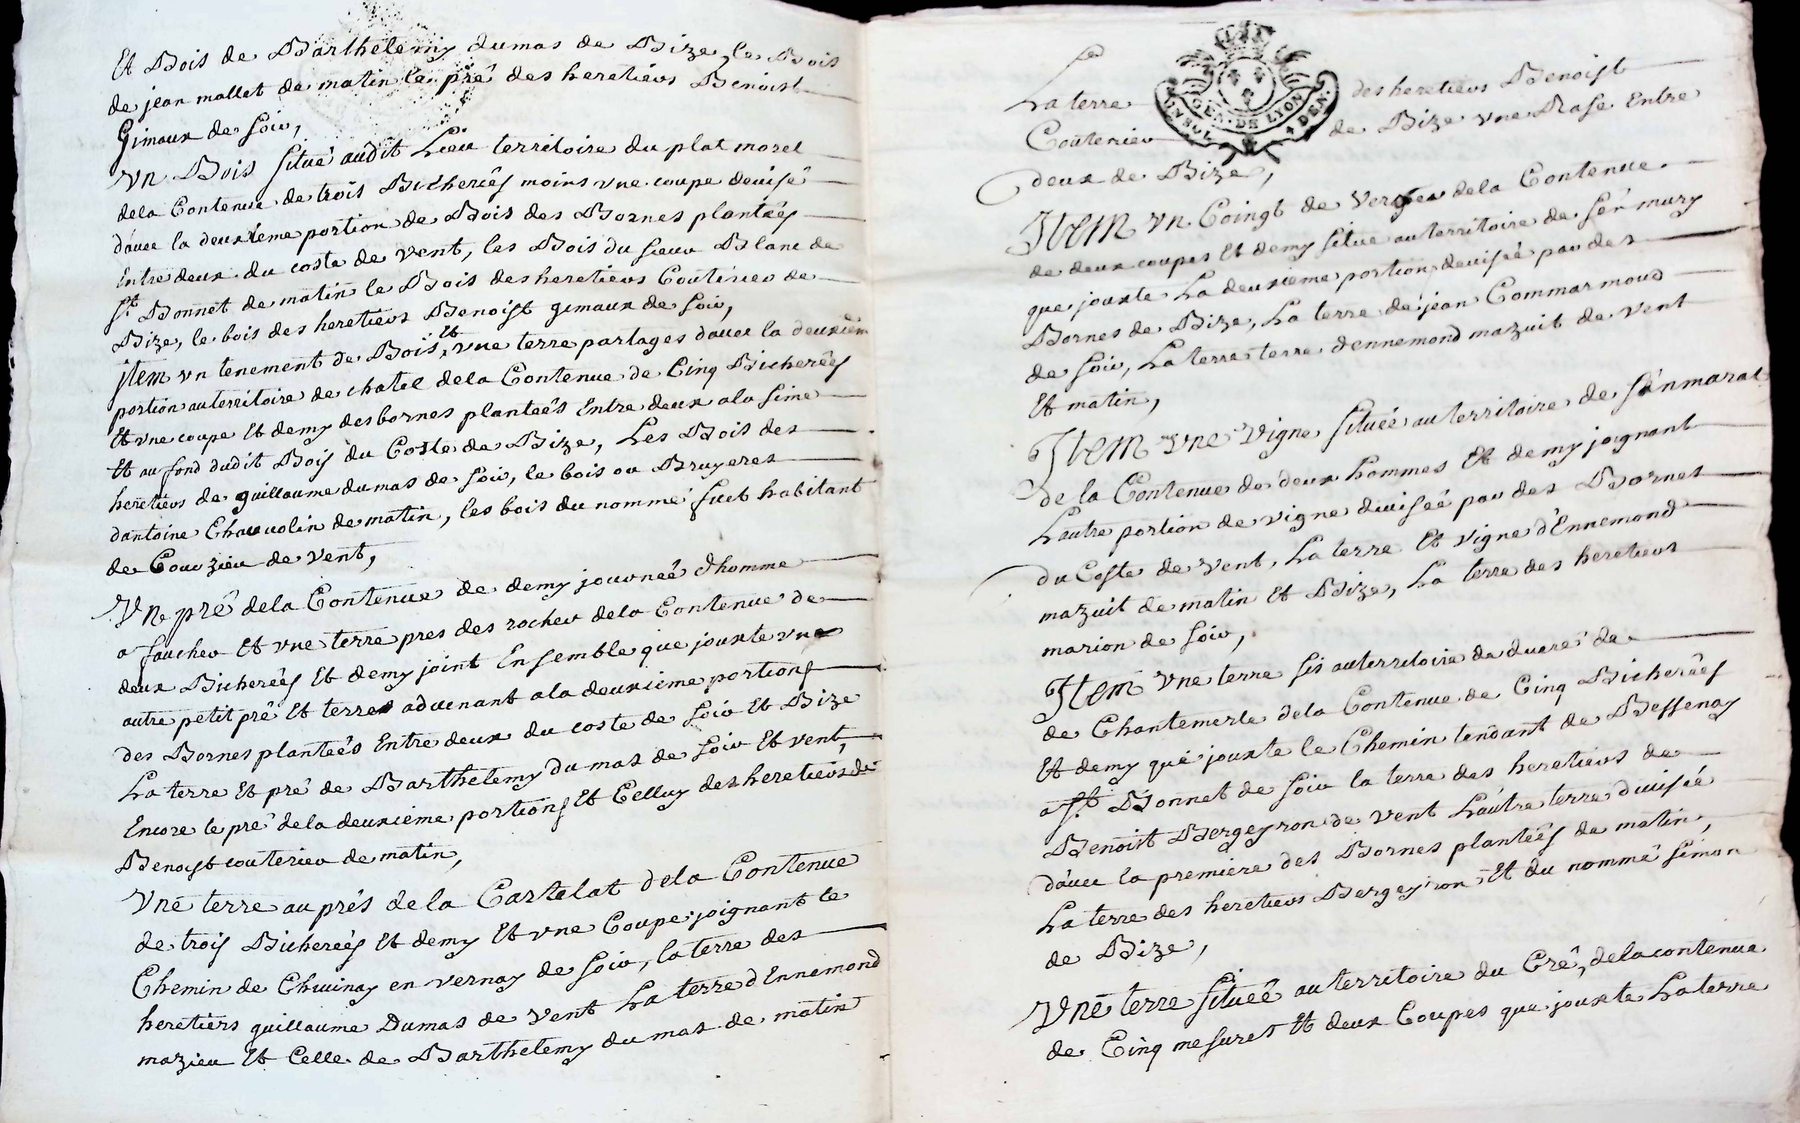 Et Bois de Barthelemy dumas de Bize, le Bois
de jean mallet de matin le pré des heretiers Benoist
Gimaux de soir,
Un Bois situé audit Lieu territoire du plat morel
dela Contenue de trois Bicherées moins une coupe devisé
d'avec la deuxieme portion de Bois des Bornes plantées
Entre deux du coste de vent, les Bois du sieur Blanc de
St. Bonnet de matin le Bois des heretiers Couturier de
Bize, le bois des heretiers Benoist gimaux de soir,
jtem un tenement de Bois, et une terre partages d'avec la deuxiem
portion au territoire de chatel dela Contenue de Cinq Bicherées
Et une coupe Et demy des bornes plantées Entre deux a la sime
Et au fond dudit Bois du Coste de Bize, Les Bois des
heretiers de guillaume dumas de soir, le bois ou Bruyeres
dantoine Chauvolin de matin, les bois du nommé suet habitant
de Courzieu de vent,
Un pré dela Contenue de demy journeé d'homme
a faucher Et une terre pres des rocher dela Contenue de
deux Bicherées Et demy joint Ensemble que jouxte une
autre petit pré Et terre advenant a la deuxieme portions
des Bornes plantées Entre deux du coste de soir Et Bize
La terre Et pré de Barthelemy du mas de soir Et vent,
Encore le pré dela deuxieme portions Et Celluy des heretiers de
Benoist couterier de matin,
Une terre au prés de la Cartelat dela Contenue
de trois Bicherées Et demy Et une Coupe joignant le
Chemin de Chevinay en vernay de soir, la terre des
heretiers guillaume Dumas de vent La terre d'Ennemond
mazieu Et Celle de Barthelemy du mas de matin
La terre des heretiers Benoist
Couterier de Bize une Rase Entre
GEN. DE LYON
deux de Bize,
Item un Coingt de verger dela Contenue
de deux coupes Et demy situe au territoire de sen mury
que jouxte La deuxieme portion devisée par des
Bornes de Bize, La terre de jean Commarmond
de soir, La terre terre d'ennemond mazuit de vent
Et matin,
Item une vigne située au territoire de senmarat
de la Contenue de deux hommes Et demy joignant
L'autre portion de vigne divisée par des Bornes
du Coste de vent, La terre Et vigne d'Ennemond
mazuit de matin Et Bize, La terre des heretiers
marion de soir,
Item une terre sis au territoire de de
de Chantemerle dela Contenue de Cinq Bicherées
Et demy que jouxte le Chemin tendant de Bessenay
a St. Bonnet de soir la terre des heretiers de
Benoist Bergeyron de vent L'autre terre divisée
d'avec la premiere des Bornes plantées de matin,
La terre des heretiers Bergeyron Et du nommé simon
de Bize,
Une terre située au territoire du Cré, dela contenue
de Cinq mesures Et deux Coupes que jouxte La terre